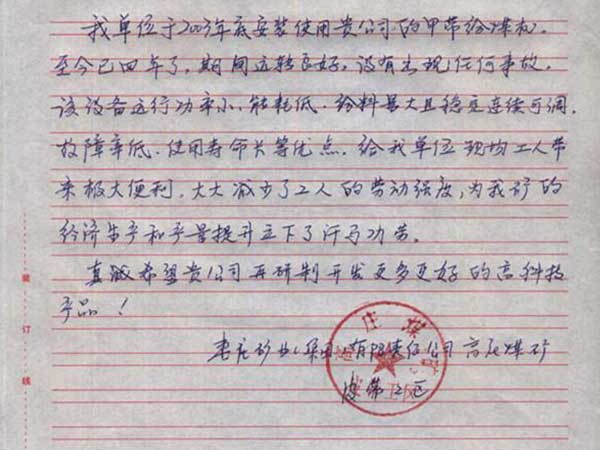 我单位于2003年底安装使用贵公司的甲带给煤机.
至今已四年了，期间运转良好，没有出现任何事故，
该设备运行功率小，能耗低、给料量大且稳定连续可调.
故障率低、使用寿命长等优点，给我单位现场工人带
来极大便利，大大减少了工人的劳动强度，为我矿的
经济生产和产量提升立下了汗马功劳。
真诚希望贵公司再研制开发更多更好的高科技
产品！
枣庄矿业(集团)有限责任公司高庄煤矿
皮带工区
庄煤
装
订
线